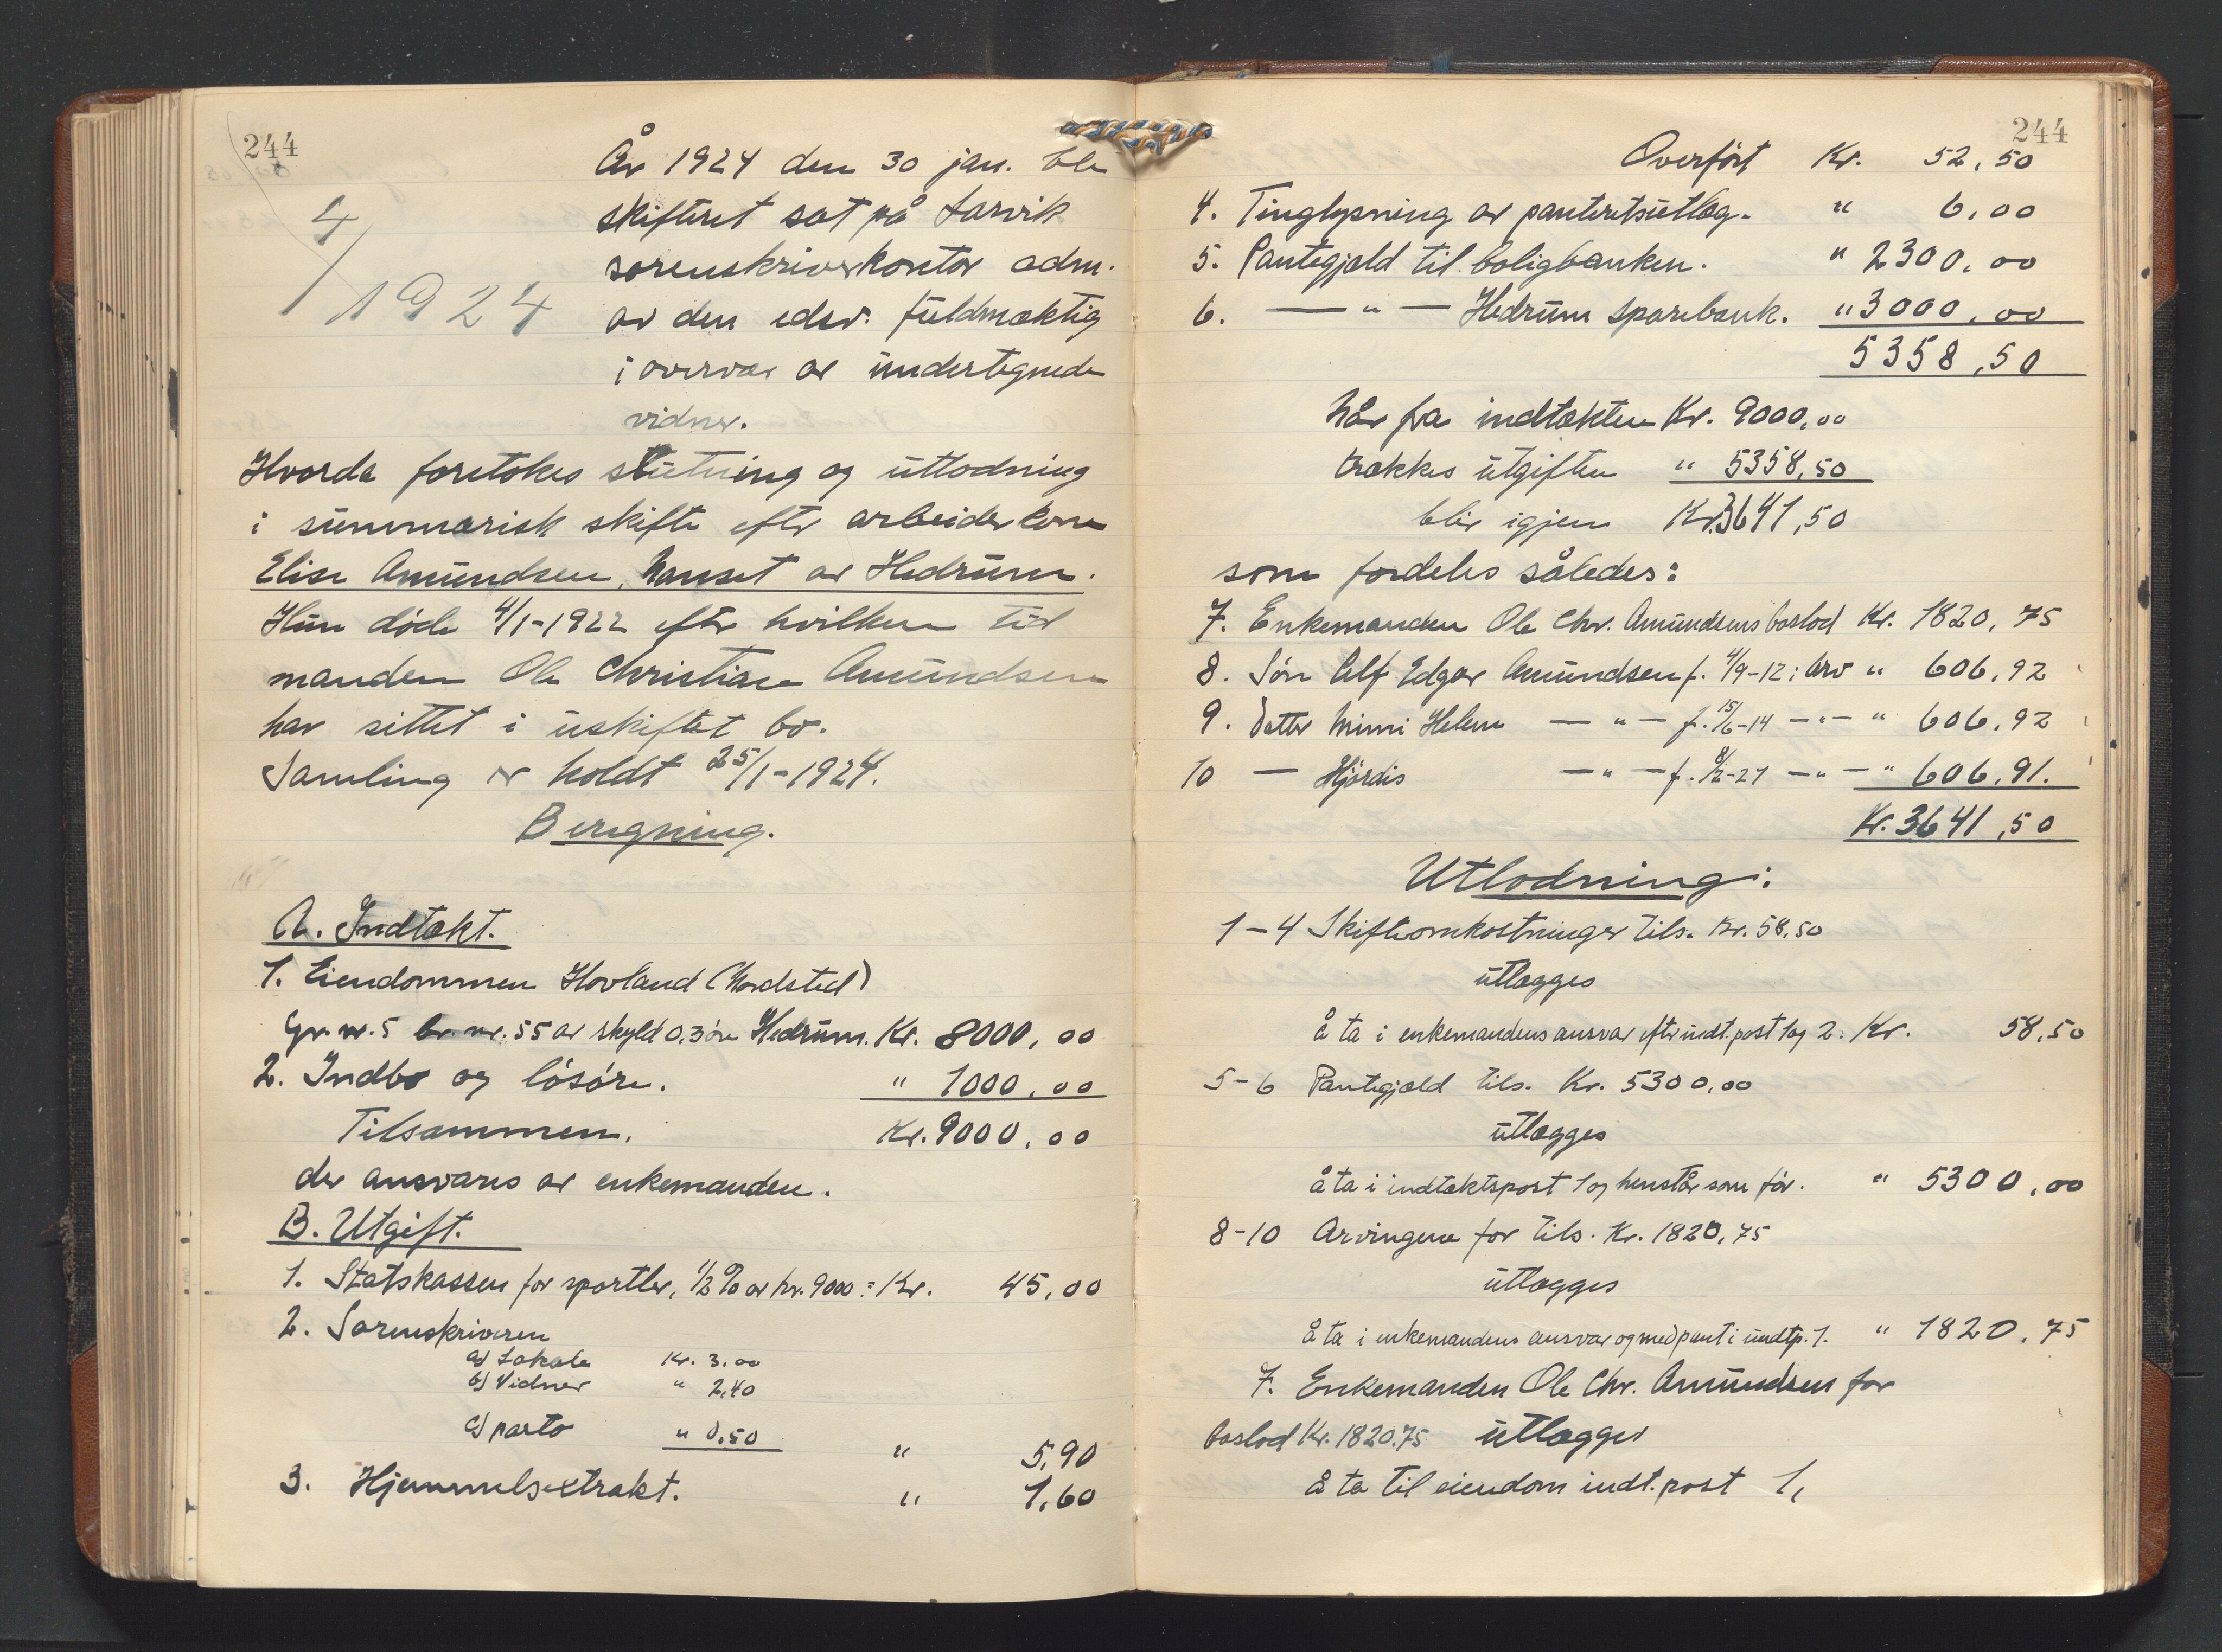 244
År 1924 den 30 jan. ble
skifteret sat på Larvik
sorenskriverkontor adm.
av den edsv. fuldmæktig
i overvær av undertegnede
vidner.
4/1924
Hvorda foretokes slutning og utlodning
i summarisk skifte efter arbeiderkone
Elise Amundsen, Nanset av Hedrum.
Hun døde 4/1-1922 efter hvilken tid
manden Ole Christian Amundsen
har sittet i uskiftet bo.
Samling er holdt 25/1-1924.
Beregning.
A. Indtækt.
1. Eiendommen Hovland (Nordsted)
Gr. nr. 5 br. nr. 55 av skyld 0.3 øre Hedrum. Kr. 8000,00
2. Indbo og løsøre. " 1000,00
Tilsammen. Kr. 9000,00
der ansvares av enkemanden.
B. Utgift.
1. Statskassen for sportler, 1/2 % av kr. 9000 = Kr. 45,00
2. Sorenskriveren
a) Lokale Kr. 3.00
b) Vidner " 2,40
c) porto " 0,50 " 5,90
3. Hjemmelsextrakt. " 1,60
244
Overført Kr. 52,50
4. Tinglysning av panteretsutlæg. " 6,00
5. Pantegjæld til boligbanken. " 2300,00
6. — " — Hedrum Sparebank. " 3000,00
5358,50
Når fra indtækten Kr. 9000,00
trækkes utgiften " 5358,50
blir igjen Kr. 3641,50
som fordeles således:
7. Enkemanden Ole Chr. Amundsens boslod Kr. 1820,75
8. Søn Alf Edgar Amundsen f. 4/9-12 i Arv " 606,92
9. Datter Mimi Helene — " — f. 15/6-14 — " — " 606,92
10 — Hjørdis — " — f. 8/2-21 — " — " 606,91.
Kr. 3641,50
Utlodning:
1-4 Skifteomkostninger tils. Kr. 58,50
utlægges
å ta i enkemandens ansvar efter indt. post 1 og 2. Kr. 58,50
5-6 Pantegjæld tils. Kr. 5300,00
utlægges
å ta i indtæktspost 1 og henstår som før. " 5300,00
8-10 Arvingene for tils. Kr. 1820,75
utlægges
å ta i enkemandens ansvar og med pant i indtp. 1. " 1820,75
7. Enkemanden Ole Chr. Amundsen for
boslod Kr. 1820.75 utlægges
å ta til eiendom indt. post 1,